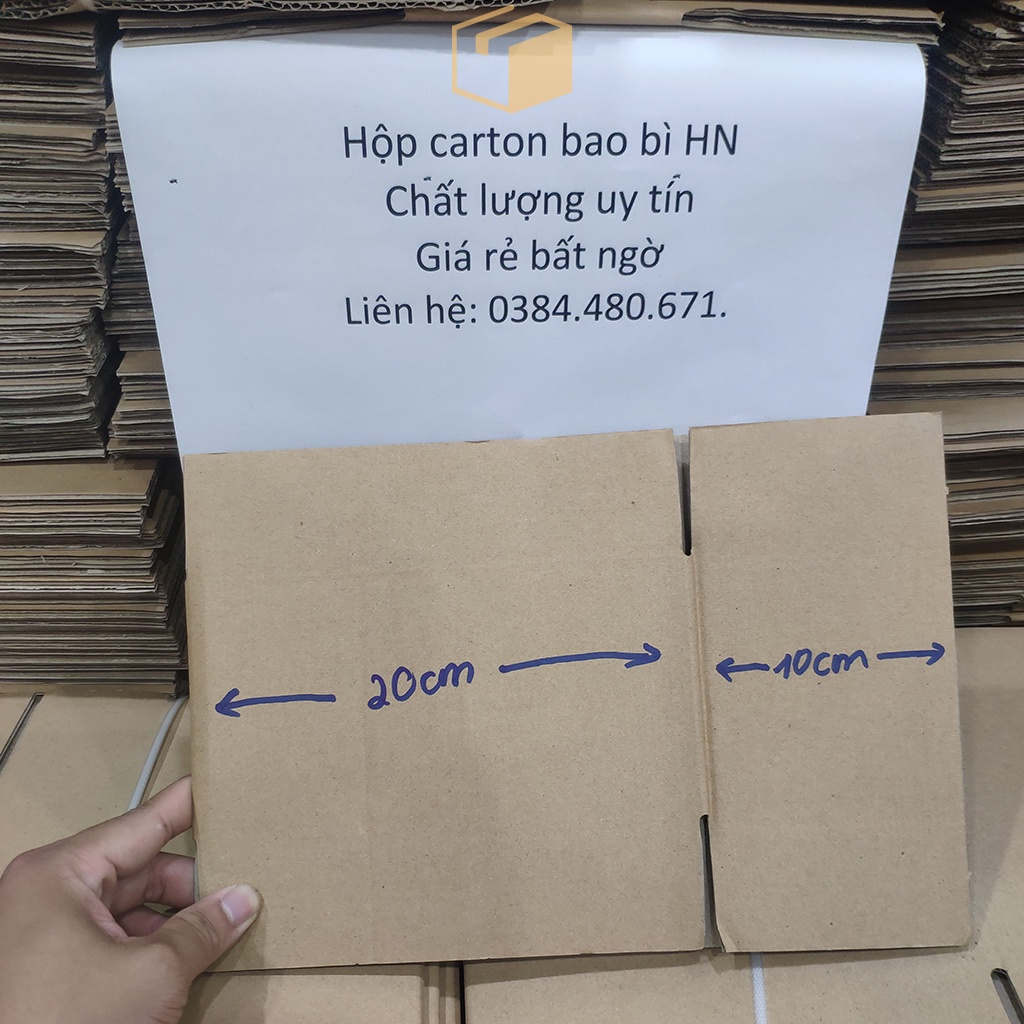 Hộp carton bao bì HN
Chất lượng uy tín
Giá rẻ bất ngờ
Liên hệ: 0384.480.671.
20cm
10cm